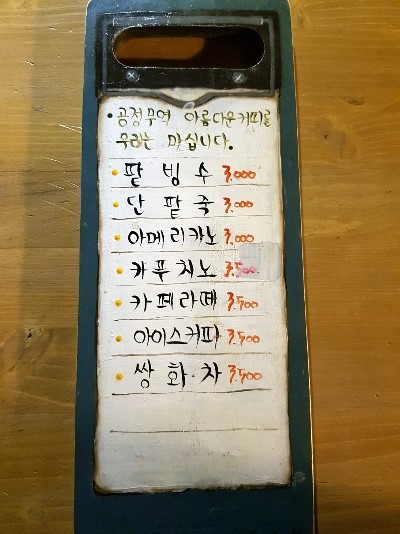 • 공정무역 아름다운커피를
우리는 마십니다.
• 팥 빙 수 3.000
• 단 팥 죽 3.000
• 아메리카노 3.000
• 카푸치노 3.500
• 카페라떼 3.500
• 아이스커피 3.500
• 쌍 화 차 3.500